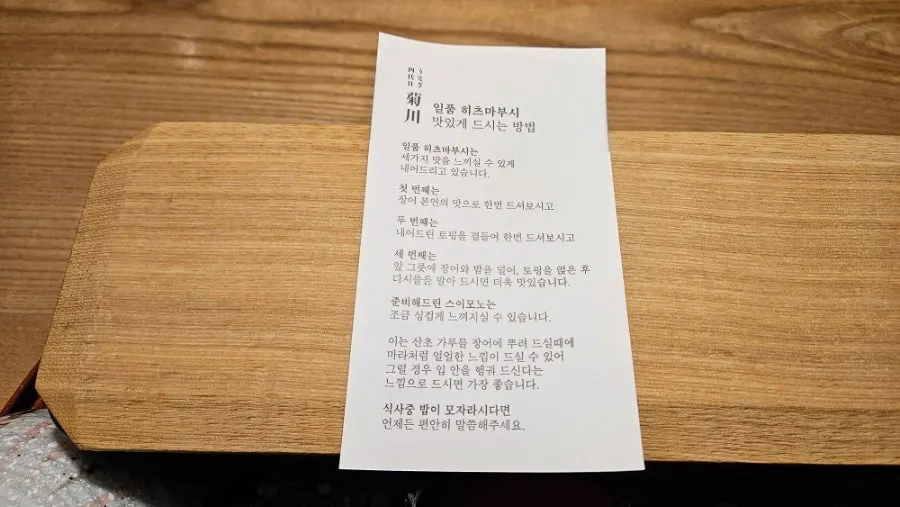 うなぎ
四代目
菊川
일품 히츠마부시
맛있게 드시는 방법
일품 히츠마부시는
세가지 맛을 느끼실 수 있게
내어드리고 있습니다.
첫 번째는
장어 본연의 맛으로 한번 드셔보시고
두 번째는
내어드린 토핑을 곁들여 한번 드셔보시고
세 번째는
앞 그릇에 장어와 밥을 덜어, 토핑을 얹은 후
다시를을 말아 드시면 더욱 맛있습니다.
준비해드린 스이모노는
조금 싱겁게 느껴지실 수 있습니다.
이는 산초 가루를 장어에 뿌려 드실때에
마라처럼 얼얼한 느낌이 드실 수 있어
그럴 경우 입 안을 헹궈 드신다는
느낌으로 드시면 가장 좋습니다.
식사중 밥이 모자라시다면
언제든 편안히 말씀해주세요.